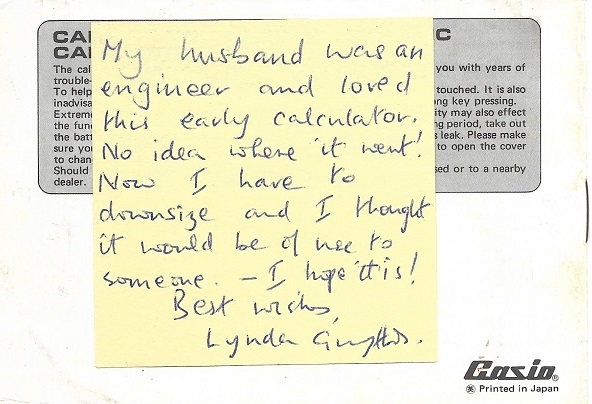 CA
C
CA
My husband was an
engineer and loved
this early calculator.
No idea where it went!
Now I have to
downsize and I thought
it would be of use to
someone. – I hope it is!
Best wishes,
Lynda
The cal
you with years of
trouble-
To help
touched. It is also
inadvisa
ng key pressing.
Extreme
ity may also effect
the func
ng period, take out
the batt
leak. Please make
sure you
to open the cover
to chang
Should
sed or to a nearby
dealer.
Casio®
Printed in Japan